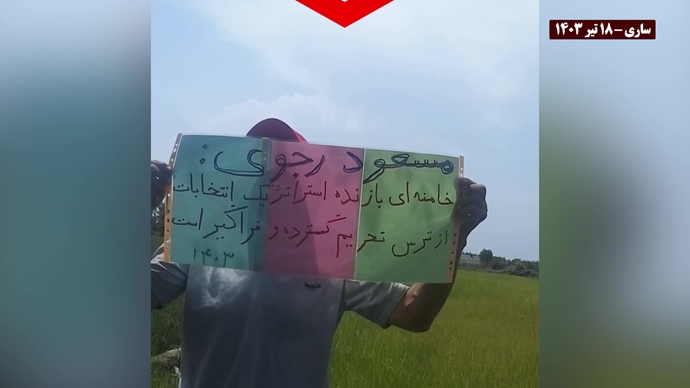 ساری - ۱۸ تیر ۱۴۰۳
مسعود رجوی:
خامنه ای بازنده استراتژیک انتخابات
از ترس تحریم گسترده و فراگیر است
۱۴۰۳